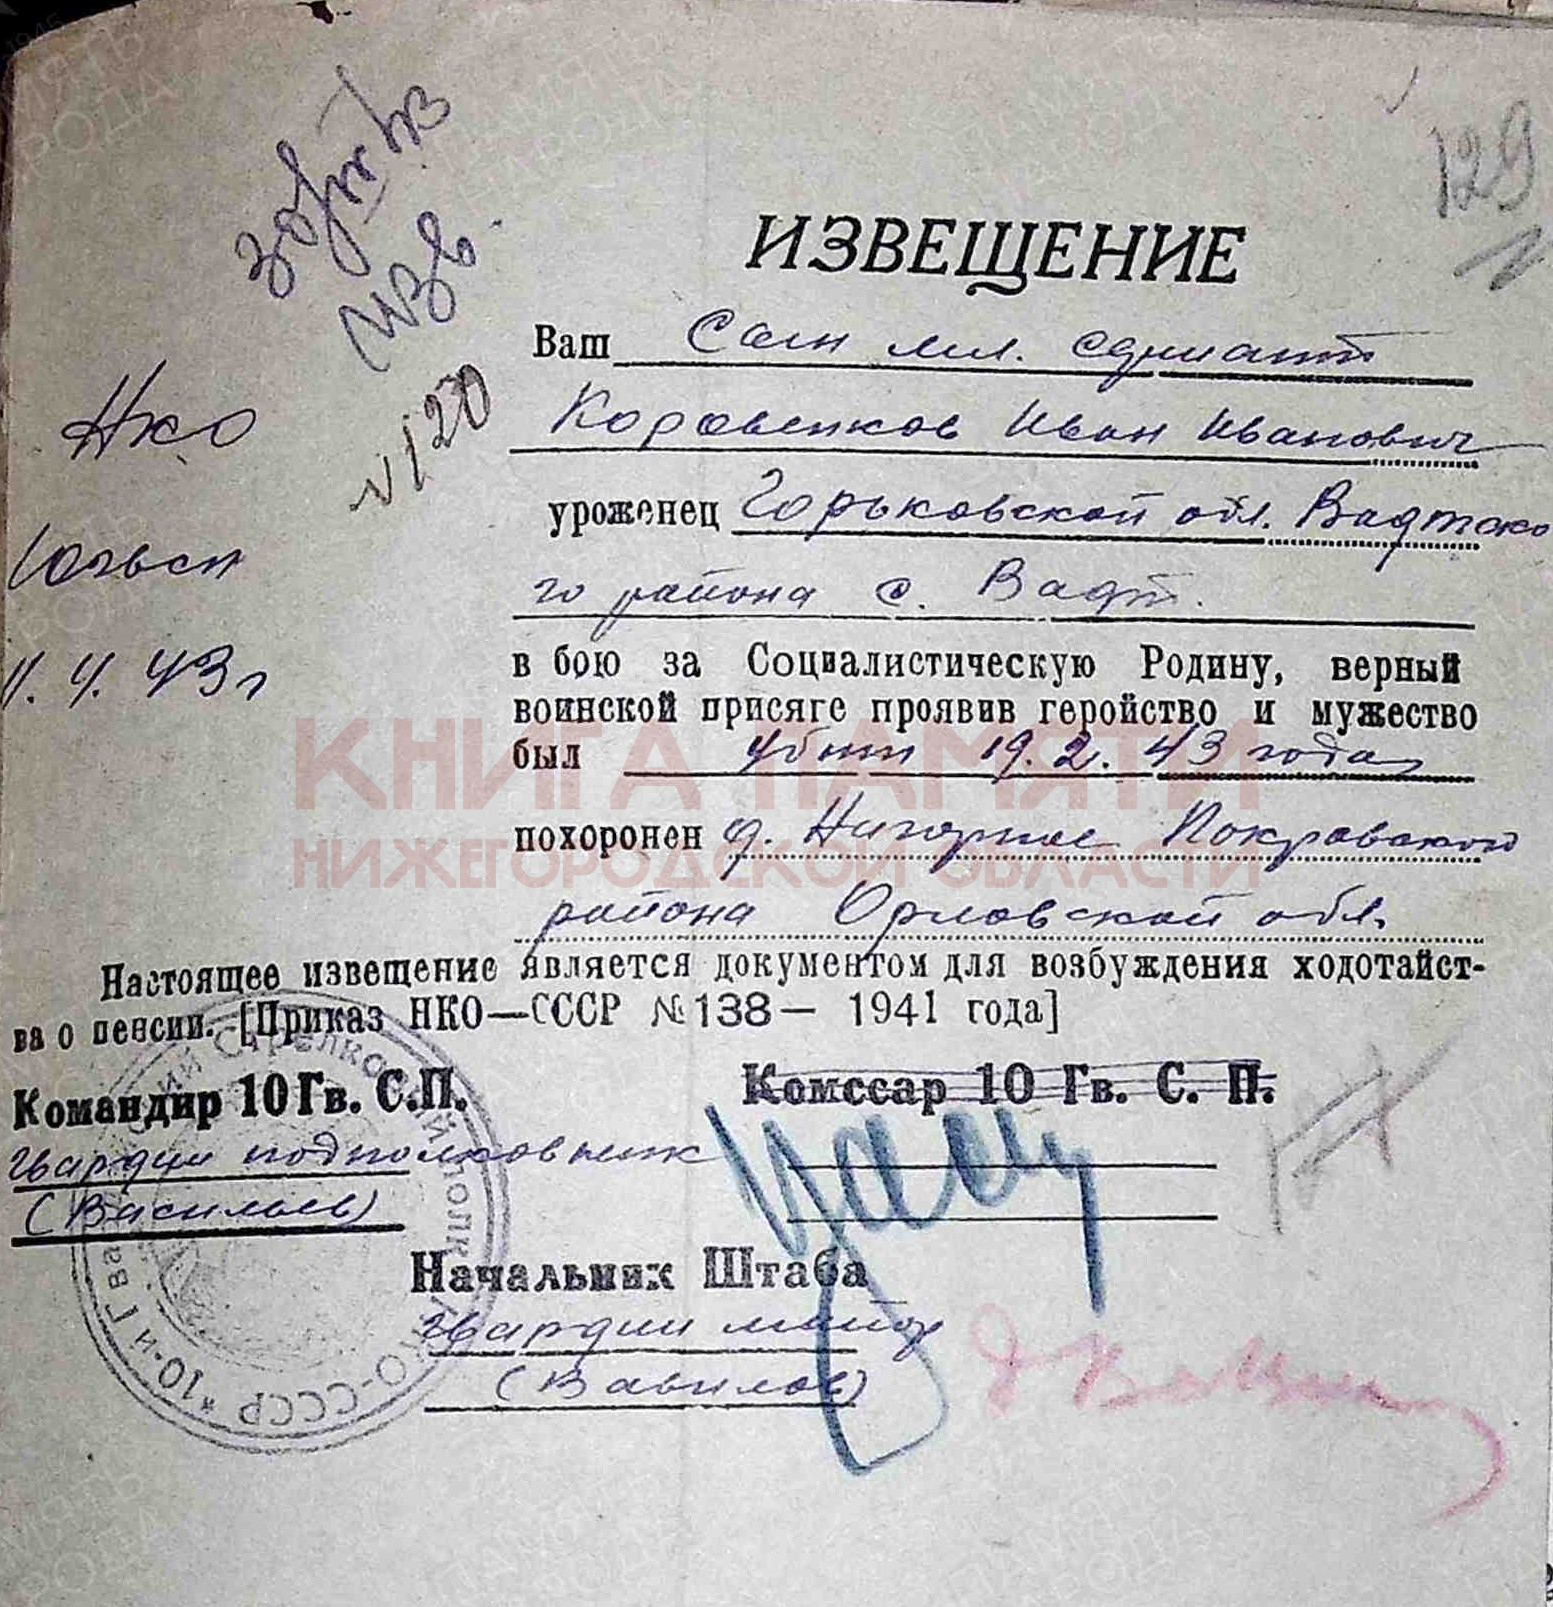 129
ИЗВЕЩЕНИЕ
Ваш Сын мл. сержант
изв.
№ 120
НКО
Коровенков Иван Иванович
уроженец Горьковской обл. Вадтско
го района с. Вадт.
4. 43 г
в бою за Социалистическую Родину, верный
воинской присяге проявив геройство и мужество
был убит 19.2.43 года
КНИГА ПАМЯТИ
похоронен д. Нагорное Покровского
НИЖЕГОРОДСКОЙ ОБЛАСТИ
района Орловской обл.
Настоящее извещение является документом для возбуждения ходотайст-
ва о пенсии. [Приказ НКО—СССР №138— 1941 года]
Командир 10 Гв. С.П.
Комссар 10 Гв. С. П.
гвардии подполковник
(Васильев)
Начальник Штаба
гвардии майор
(Вавилов)
НКО-СССР * 10-й Гвардейский Стрелковый полк